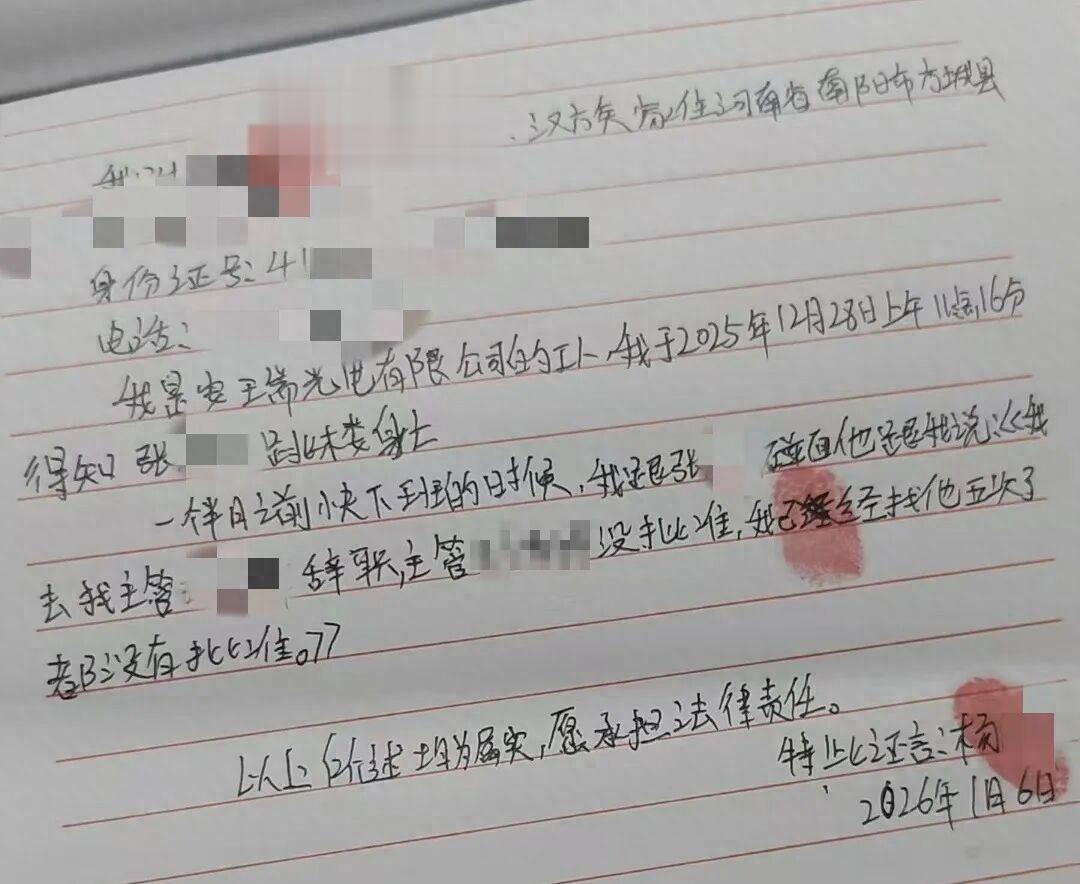 汉方矣家住河南省南阳市方城县
我叫
身份证号:41
电话:
我是安王瑞光电有限公司的工人,我于2025年12月28日上午11点16分
得知张 跳楼
一个半月之前小夫下班的时候,我遇张 碰面他跟我说:《我
去找主管 辞职,主管 没批准,我已经找他五次了
都没有批准。》
以上所述均为属实,愿承担法律责任。
特此证言:杨
2026年1月6日